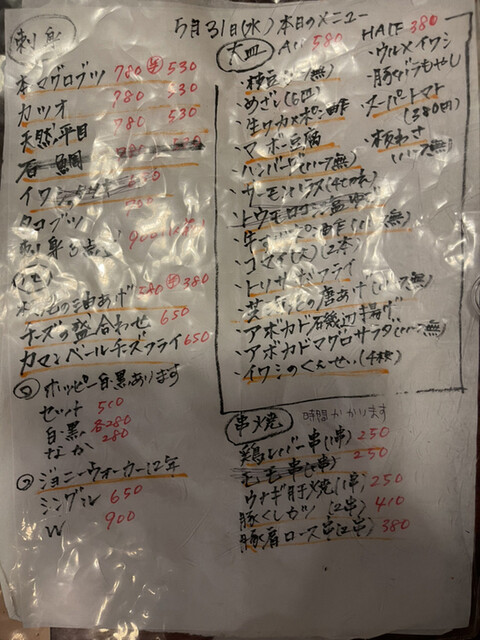 5月31日(水) 本日のメニュー
刺身
本マグロブツ 780 半 530
カツオ 780 530
天然平目 780 530
石鯛
イワシ
タコブツ
刺身
油あげ 580 半 380
チーズの盛合わせ 650
カマンベールチーズフライ 650
ホッピー白黒あります
セット 500
白・黒 各280
なか 280
ジョニーウォーカー12年
シングル 650
W 900
大皿 All 580
HALF 380
・枝豆 (ハーフ無)
・めざし
・生ワカメポン酢
・マーボー豆腐
・ハンバーグ (ハーフ無)
・サーモンハラス
・トウモロコシ
・コマイ(大)(2本)
・トリササミフライ
の唐あげ (ハーフ無)
・アボカド磯辺揚げ
・アボカドマグロサラダ (ハーフ無)
・イワシのくんせい (4枚)
・ウルメイワシ
・豚バラもやし
・スーパートマト
(380円)
・板わさ
(ハーフ無)
串焼 時間がかります
鶏レバー串(1串) 250
モモ串(1串) 250
ウナギ肝焼(1串) 250
豚くしカツ (2串) 410
豚肩ロース串(2串) 380